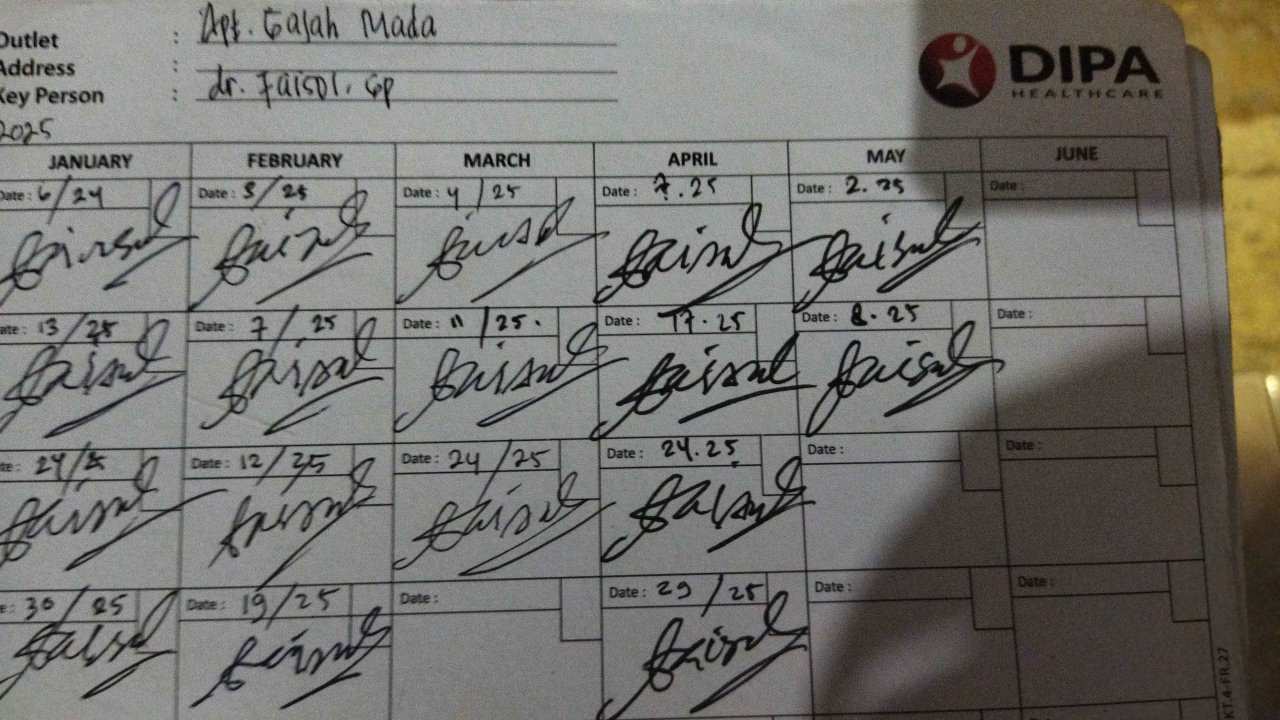 Outlet : Apt. Gajah Mada
Address :
Key Person : dr. Faisol. Gp
DIPA
HEALTHCARE
2025
JANUARY FEBRUARY MARCH APRIL MAY JUNE
Date : 6/24 Date : 3/25 Date : 4/25 Date : 7.25 Date : 2.25 Date :
Faisol Faisol Faisol Faisol Faisol
Date : 13/25 Date : 7/25 Date : 11/25. Date : 17.25 Date : 8.25 Date :
Faisol Faisol Faisol Faisol Faisol
Date : 24/25 Date : 12/25 Date : 24/25 Date : 24.25 Date : Date :
Faisol Faisol Faisol Faisol
Date : 30/25 Date : 19/25 Date : Date : 29/25 Date : Date :
Faisol Faisol Faisol